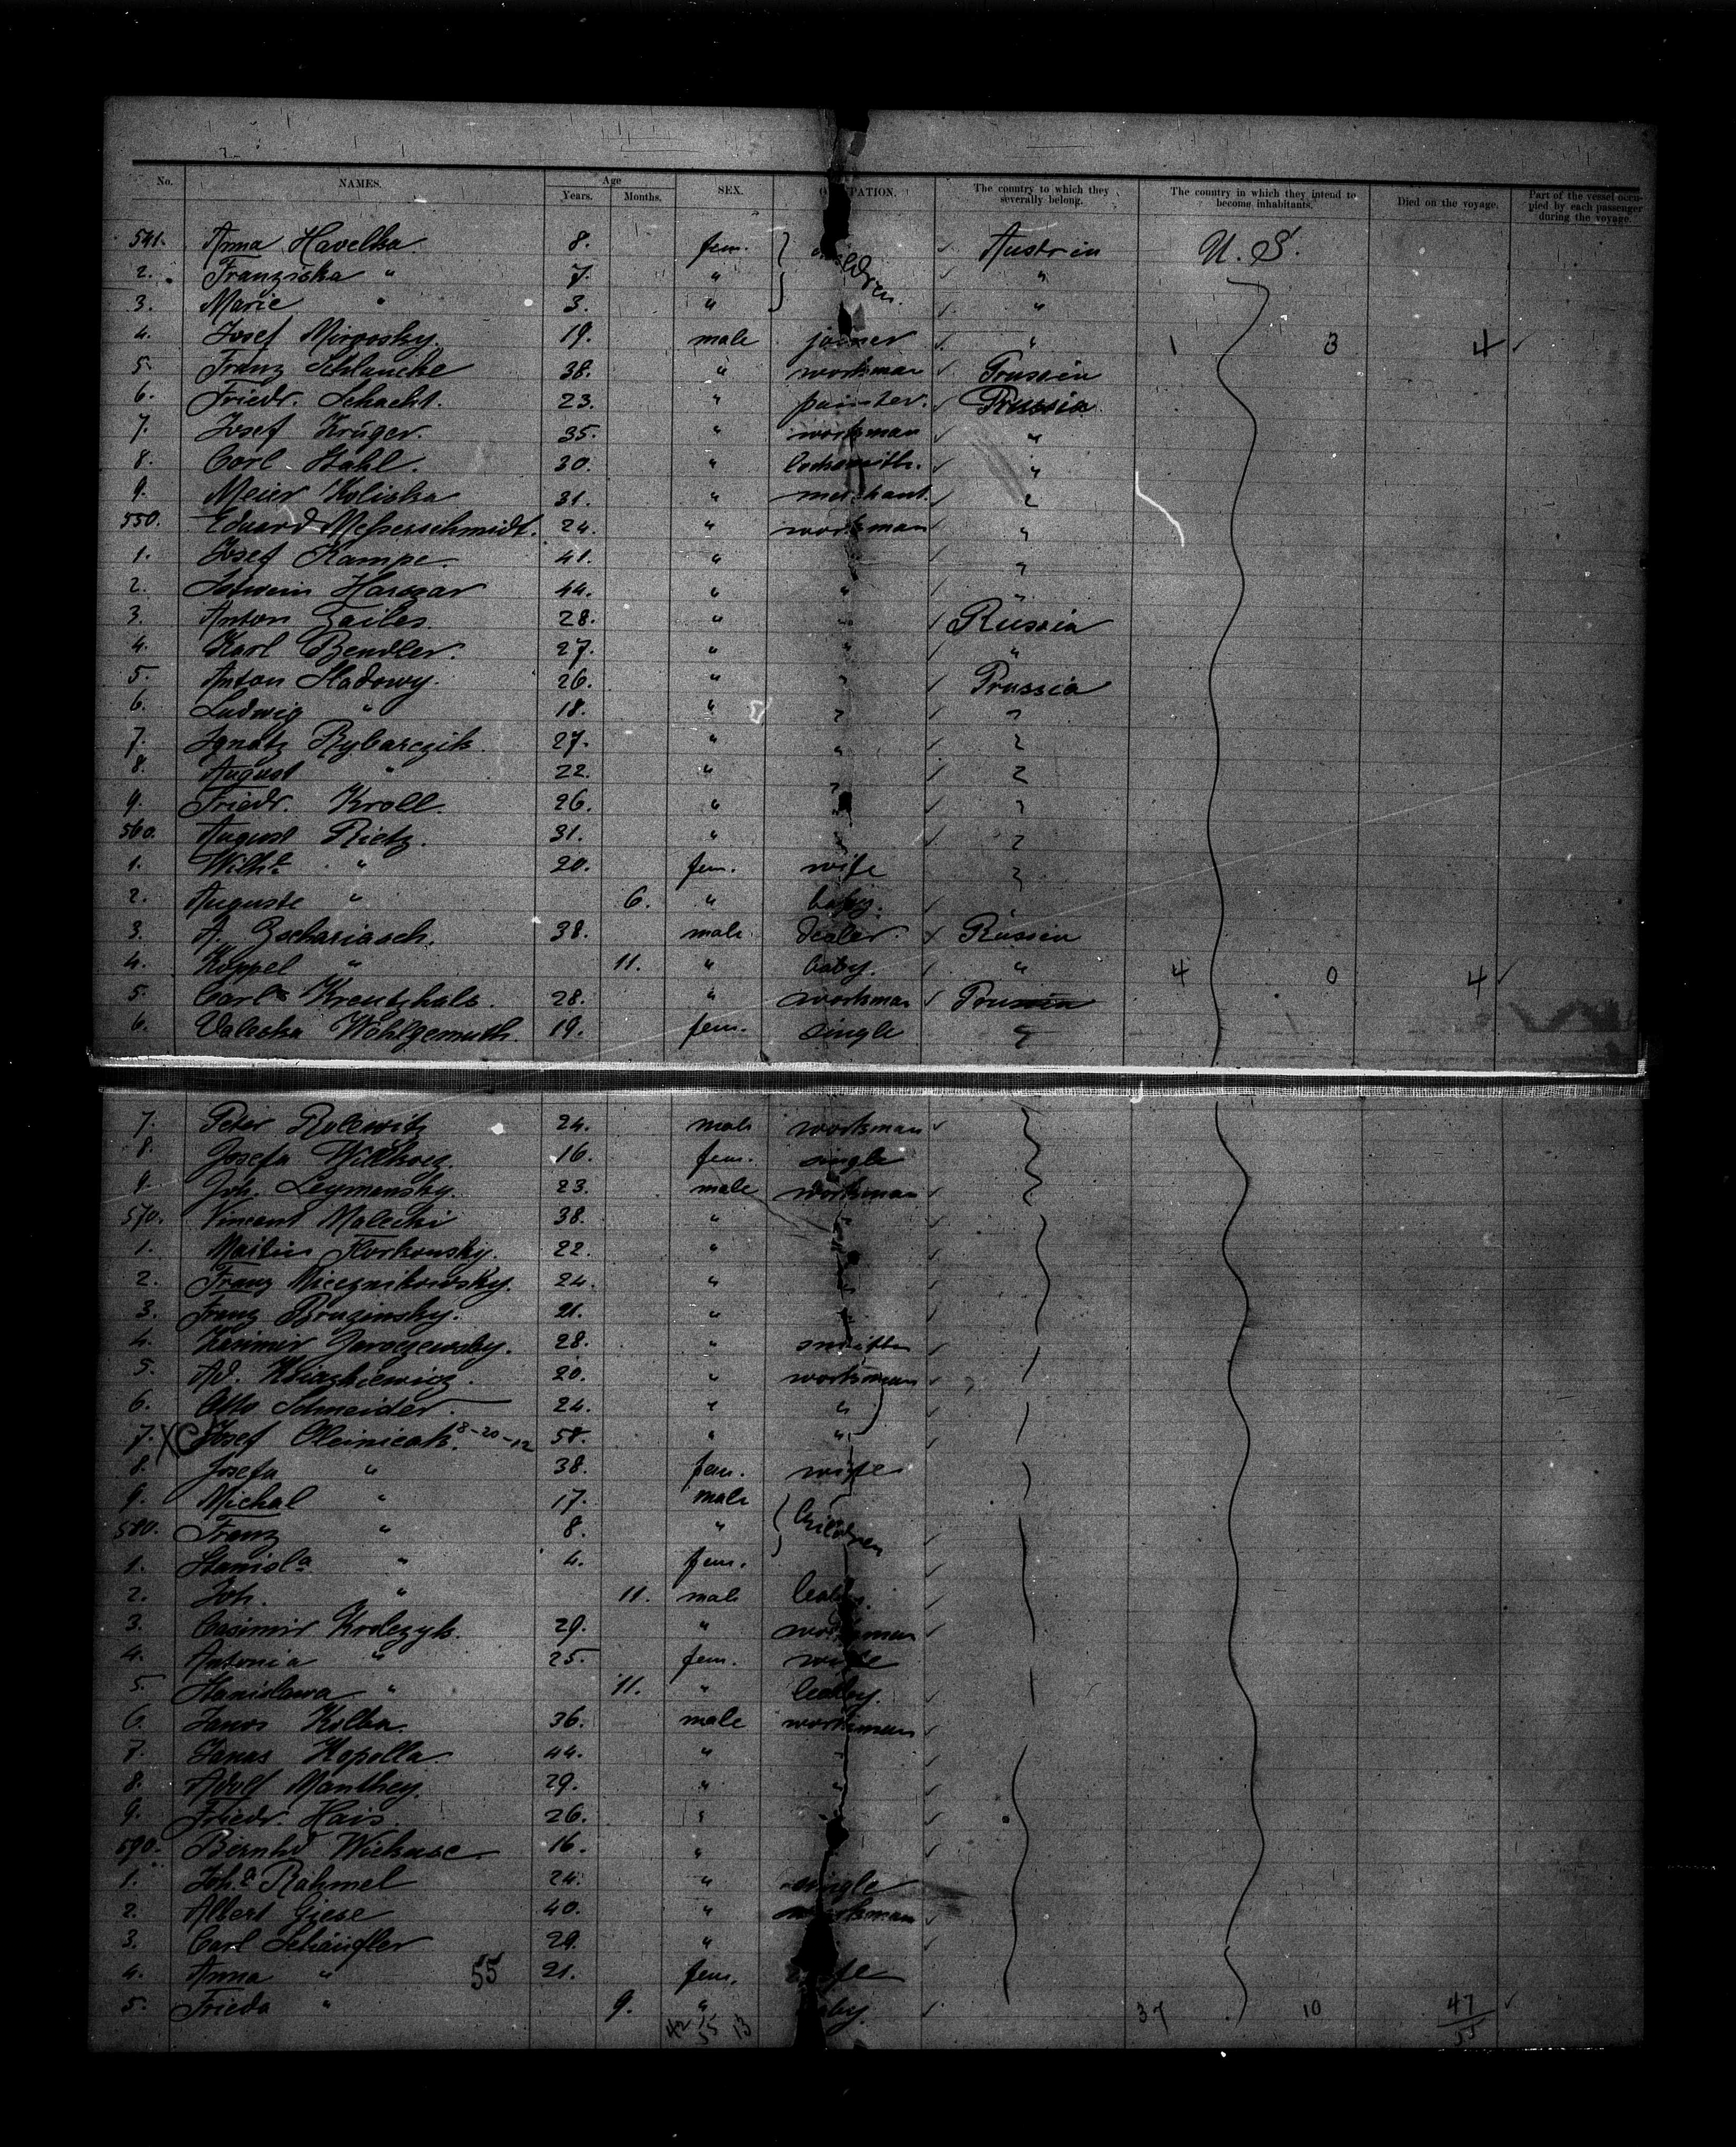 No. NAMES. Age Years. Months. SEX. OCCUPATION. The country to which they severally belong. The country in which they intend to become inhabitants. Died on the voyage. Part of the vessel occupied by each passenger during the voyage.
541. Anna Havelka 8. fem. children Austria U. S.
2. Franziska " 7. " "
3. Marie " 3. " "
4. Josef 19. male joiner " 1 3 4
5. Franz Schlancke 38. " workman Prussia
6. Friedr. Schacht. 23. " painter. Prussia
7. Josef Krüger. 35. " workman "
8. Carl Stahl. 30. " locksmith. "
9. Meier Koliska 31. " merchant. "
550. Eduard Messerschmidt. 24. " workman "
1. Josef Kampe. 41. " "
2. Harszar 44. " " "
3. Anton Gailes. 28. " " Russia
4. Karl Bendler. 27. " " "
5. Anton Sladowy. 26. " " Prussia
6. Ludwig " 18. " " "
7. Ignatz Rybarczik 27. " " "
8. August " 22. " " "
9. Friedr. Kroll. 26. " " "
560. August Rietz. 31. " " "
1. Wilh.e " 20. fem. wife "
2. Auguste " 6. " baby.
3. A. Zschariasch. 38. male dealer. Russia
4. Koppel " 11. " baby. " 4 0 4
5. Carl Kreutzhals. 28. " workman Prussia
6. Valeska Wohlgemuth. 19. fem. single "
7. Peter Rolewitz 24. male workman
8. Josefa 16. fem. single
9. Joh. Leymansky. 23. male workman
570. Vincent Malecki 38. " "
1. Martin Florkowsky. 22. "
2. Franz Miecznikowsky. 24. "
3. Franz Bruzinsky. 21. "
4. Kasimir Jaroczewsky. 28. " smith
5. Ad. Ksiazkiewicz. 20. " workman
6. Otto Schneider. 24. " "
7. XC Josef Oleinicak. 8-20-12 58. " "
8. Josefa " 38. fem. wife
9. Michal " 17. male children
580. Franz " 8. "
1. Stanisl.a " 4. fem.
2. Joh. " 11. male baby.
3. Casimir Krolczyk. 29. " workman
4. Antonia " 25. fem. wife
5. Stanislawa " 11. " baby.
6. Janos Kolba. 36. male workman
7. Janas Kopolla. 44. " "
8. Adolf Manthey. 29. " "
9. Friedr. Hais. 26. "
590. Bernhd. 16. "
1. Joh.a Rahmel 24. " single
2. Albert Giese 40. " workman
3. Carl Schäufler 29. "
4. Anna " 55 21. fem. wife
5. Frieda " 9. " baby. 37 10 47
42 55 13 55